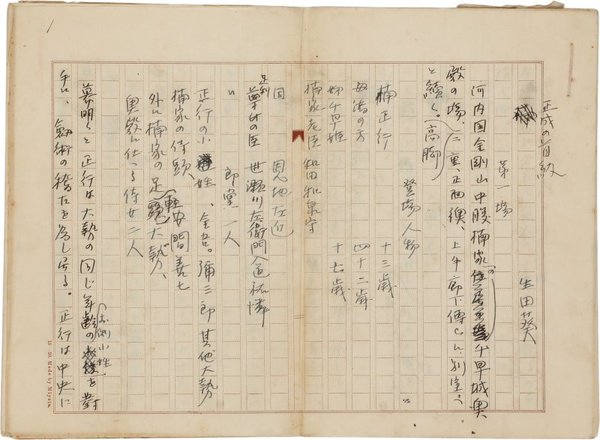 正成の首級
生田葵
第一場
河内国金剛山中腹楠家の千早城奥
殿の場(二重、正面襖、上手廊下傳ひに別室へ
と續く。(高脚)
登場人物
楠正行 十三歳
母満の方 四十二歳
姉千早姫 十七歳
楠家老臣 和田和泉守
同 恩地左近
足利尊氏の臣 世瀬川左衛門入道祐憐
〃 郎党一人
正行の小姓、金吾。彌三郎 其他大勢
楠家の侍頭 安間善七
外に楠家の足軽大勢、
奥殿に仕へる侍女二人
幕明くと正行は大勢の同じ年齢の小姓を對
手に、劔術の稽古を為し居る。正行は中央に